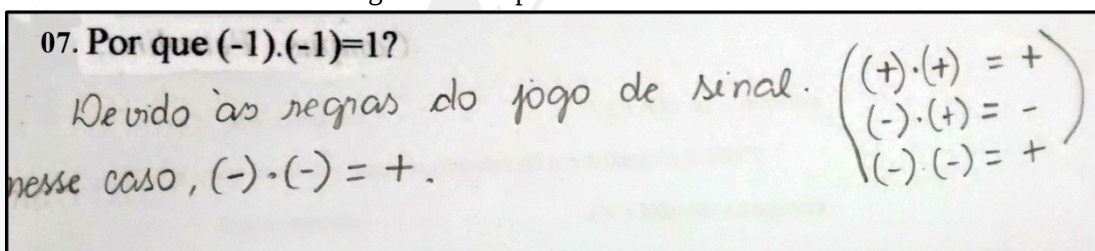 07. Por que (-1).(-1)=1?
Devido às regras do jogo de sinal.
nesse caso, (-)·(-) = +.
(+)·(+) = +
(-)·(+) = -
(-)·(-) = +